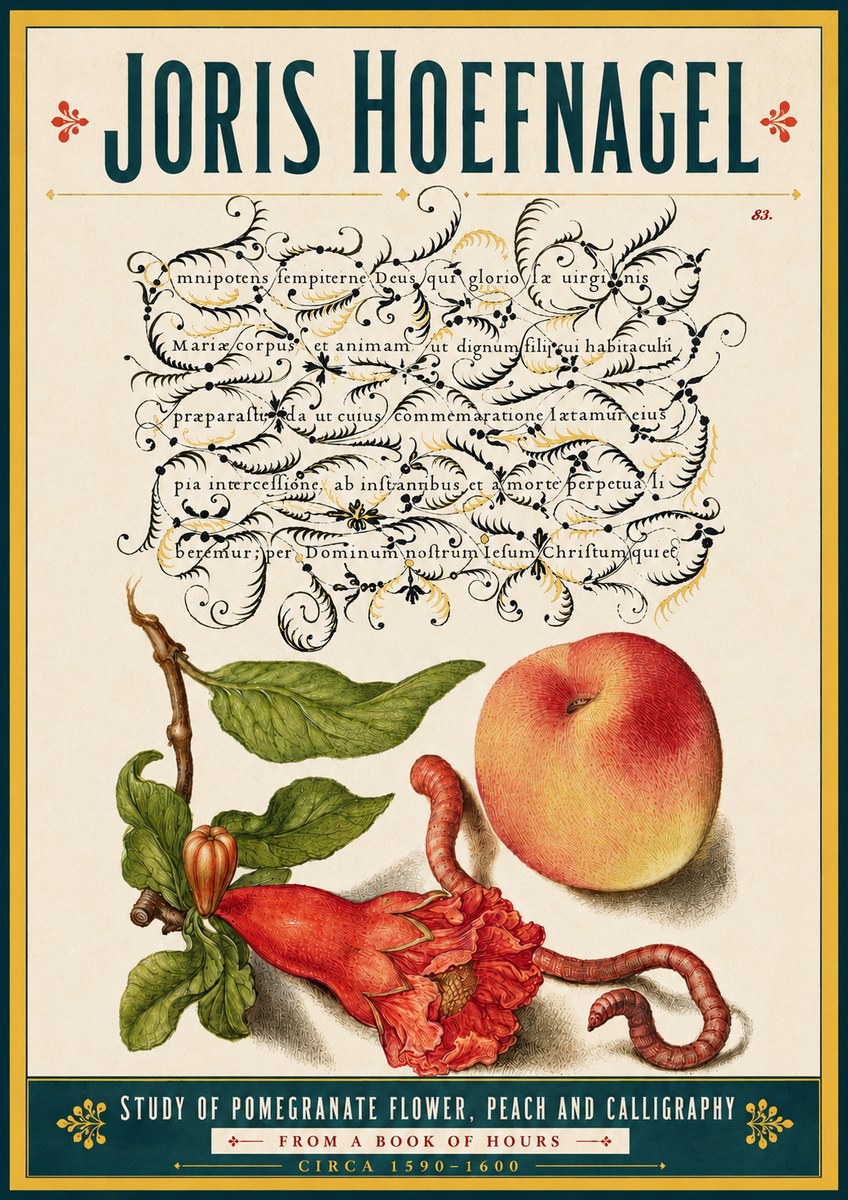 JORIS HOEFNAGEL
83.
mnipotens sempiterne Deus qui glorio sæ uirgi nis
Mariæ corpus et animam ut dignum filij tui habitaculū
præparasti da ut cuius commemaratione Iætamur eius
pia intercessione, ab instantibus et a morte perpetua li
beremur; per Dominum nostrum Iesum Christum qui et
STUDY OF POMEGRANATE FLOWER, PEACH AND CALLIGRAPHY
FROM A BOOK OF HOURS
CIRCA 1590–1600